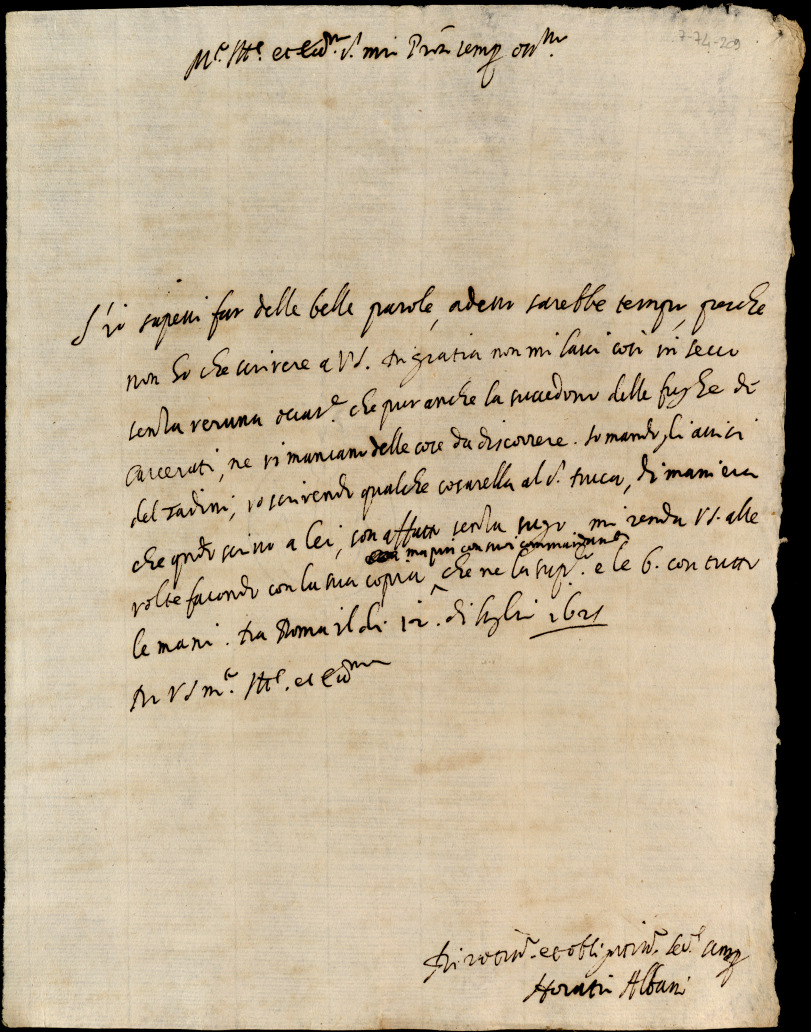 7-74-209
M.^e Ill.^e et Ecc.^mo S.^r mio Pron semp oss.^mo
S'io sapessi far delle belle parole, adesso sarebbe tempo, perche
non ho che scrivere a VS. Di gratia non mi lasci così in secco
senza veruna occas.^e che pur anche la succedono delle fughe di
carcerati, ne vi mancano delle cose da discorrere. Io mando gli avvisi
del Tadini, vo scrivendo qualche cosarella al S.^r di maniera
che qndo scrivo a lei, son affatto senza sugo. mi renda VS. alle
volte facondo con la sua copia ma pur con suoi commandandi che ne la sup.^co e le b. con tutto
le mani. Da Roma il dì 12. di luglio 1621
Di VS m.^e Ill.^e et Ecc.^ma
Divotiss.^o et obligatiss.^o se.^r semp
Horatio Albani